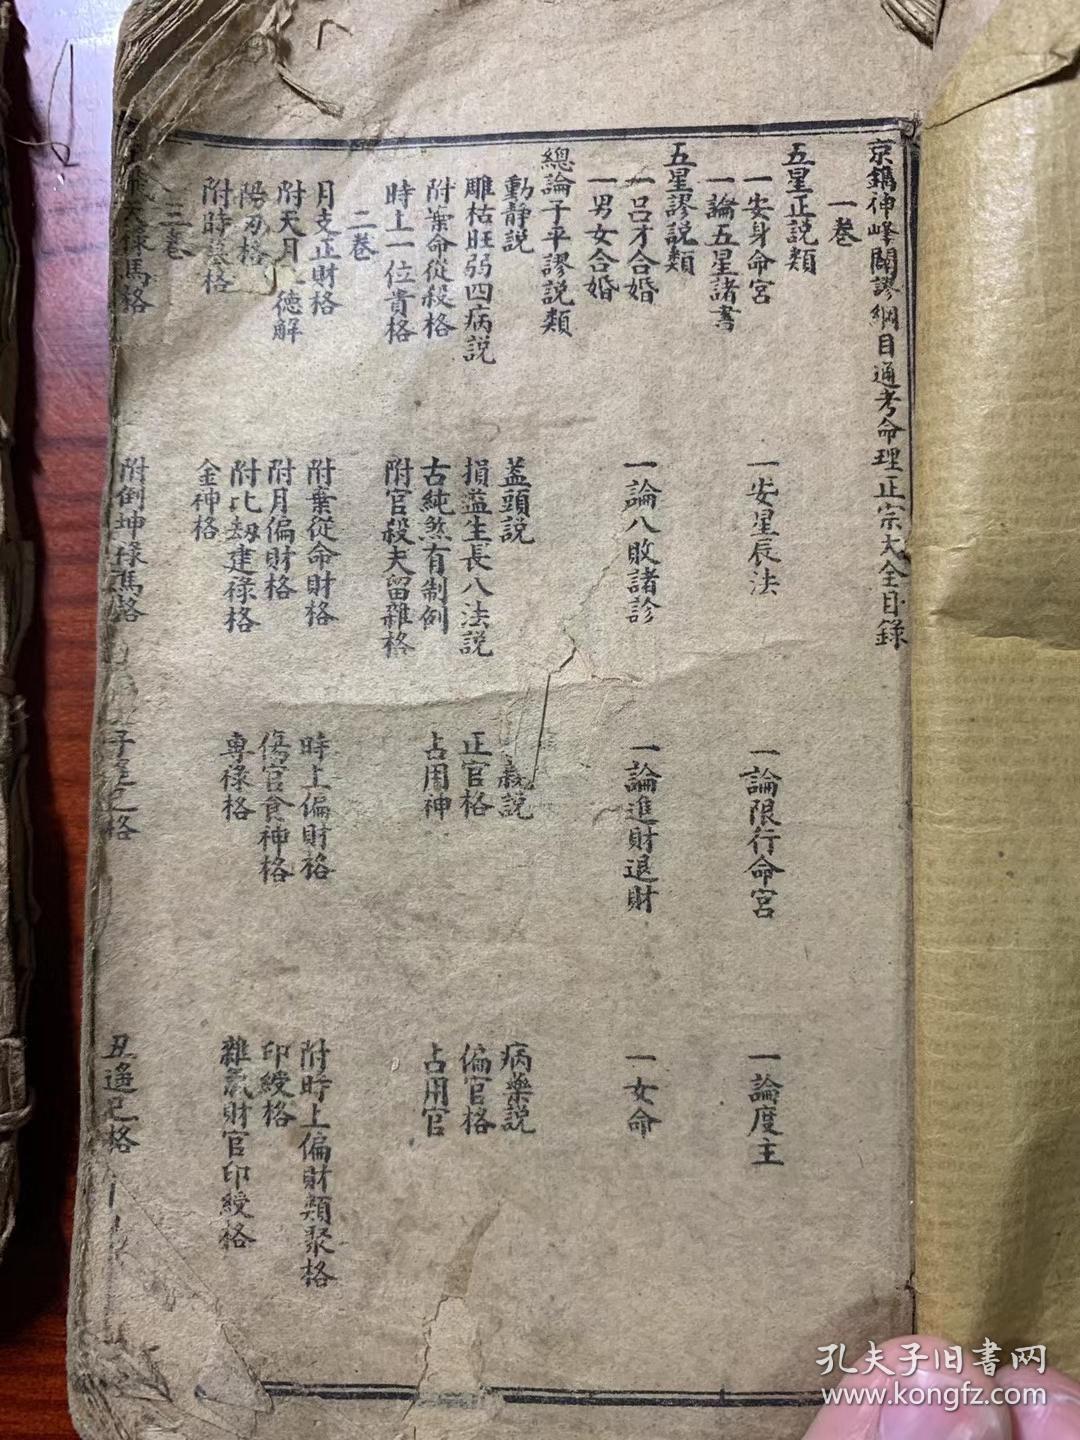 京鐫神峰闢謬綱目通考命理正宗大全目錄
一卷
五星正説類
一安身命宮 一安星辰法 一論限行命宮 一論度主
一論五星諸書
五星謬説類
一呂才合婚 一論八敗諸診 一論進財退財 一女命
一男女合婚
總論子平謬説類
動靜説 蓋頭説 説 病藥説
雕枯旺弱四病説 損益生長八法説 正官格 偏官格
附棄命從殺格 古純煞有制例 占用神 占用官
時上一位貴格 附官殺夫留雜格
二卷
月支正財格 附棄從命財格 時上偏財格 附時上偏財類聚格
附天月德解 附月偏財格 傷官食神格 印綬格
陽刃格 附比刼建祿格 專祿格 雜氣財官印綬格
附時格 金神格
三卷
天祿馬格 附倒坤祿馬格 子巳格 丑遙巳格
孔夫子旧書网
www.kongfz.com